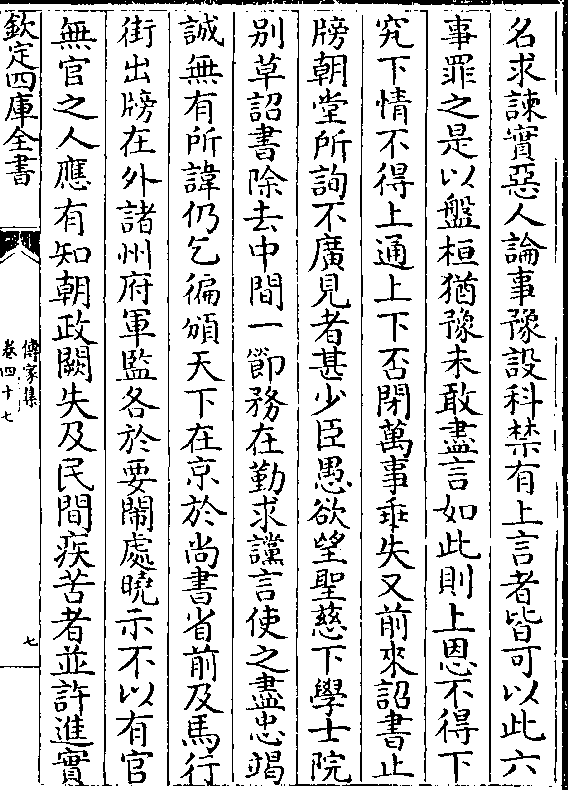 名求諫實惡人論事豫設科禁有上言者皆可以此六
事罪之是以盤桓猶豫未敢盡言如此則上恩不得下
究下情不得上通上下否閉萬事乖失又前來詔書止
牓朝堂所詢不廣見者甚少臣愚欲望聖慈下學士院
别草詔書除去中間一節務在勤求讜言使之盡忠竭
誠無有所諱仍乞徧頒天下在京於尚書省前及馬行
街出牓在外諸州府軍監各於要閙處曉示不以有官
無官之人應有知朝政闕失及民間疾苦者並許進實
欽定四庫全書
傳家集
卷四十七
七